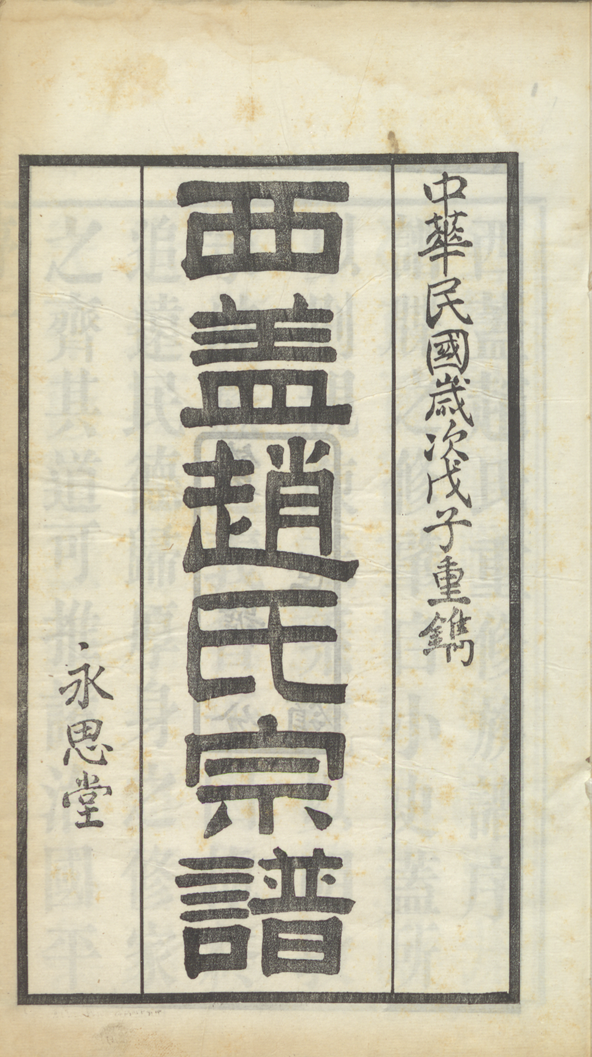 中華民國歲次戊子重鐫
西盖趙氏宗譜
永思堂